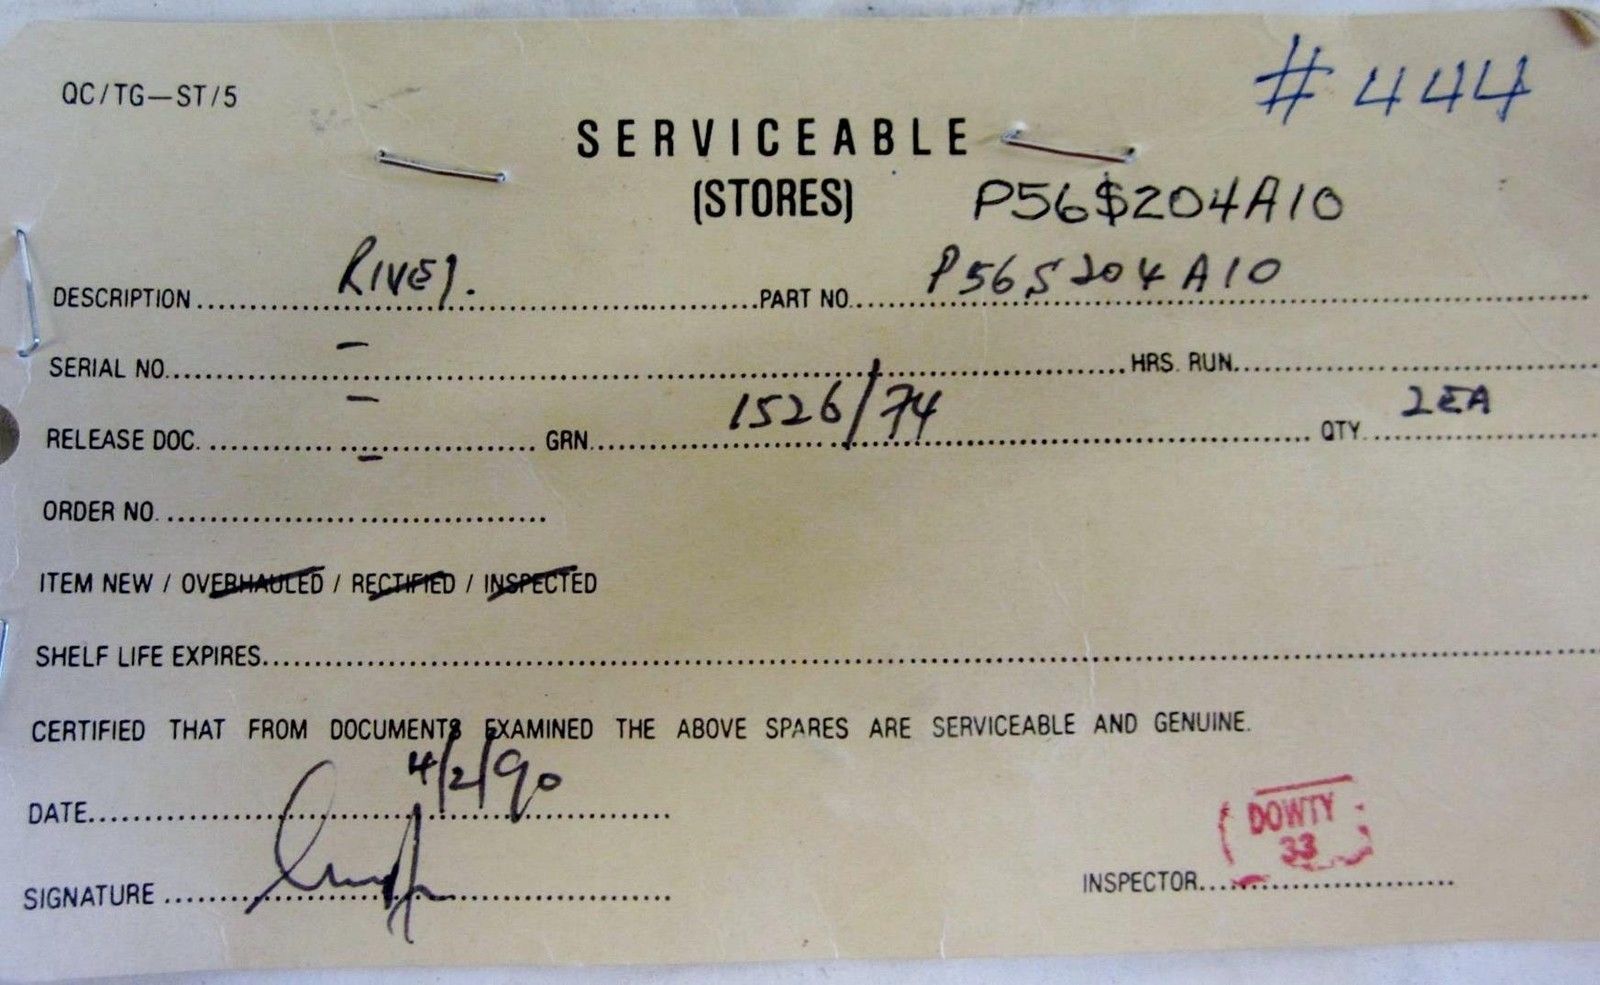 QC/TG—ST/5
# 444
SERVICEABLE
(STORES)
P56$204A10
DESCRIPTION RIVET. PART NO. P56S204A10
SERIAL NO. — HRS. RUN.
RELEASE DOC. — GRN. 1526/74 QTY. 2EA
ORDER NO. —
ITEM NEW / OVERHAULED / RECTIFIED / INSPECTED
SHELF LIFE EXPIRES
CERTIFIED THAT FROM DOCUMENTS EXAMINED THE ABOVE SPARES ARE SERVICEABLE AND GENUINE.
DATE 4/2/90
DOWTY
33
SIGNATURE INSPECTOR